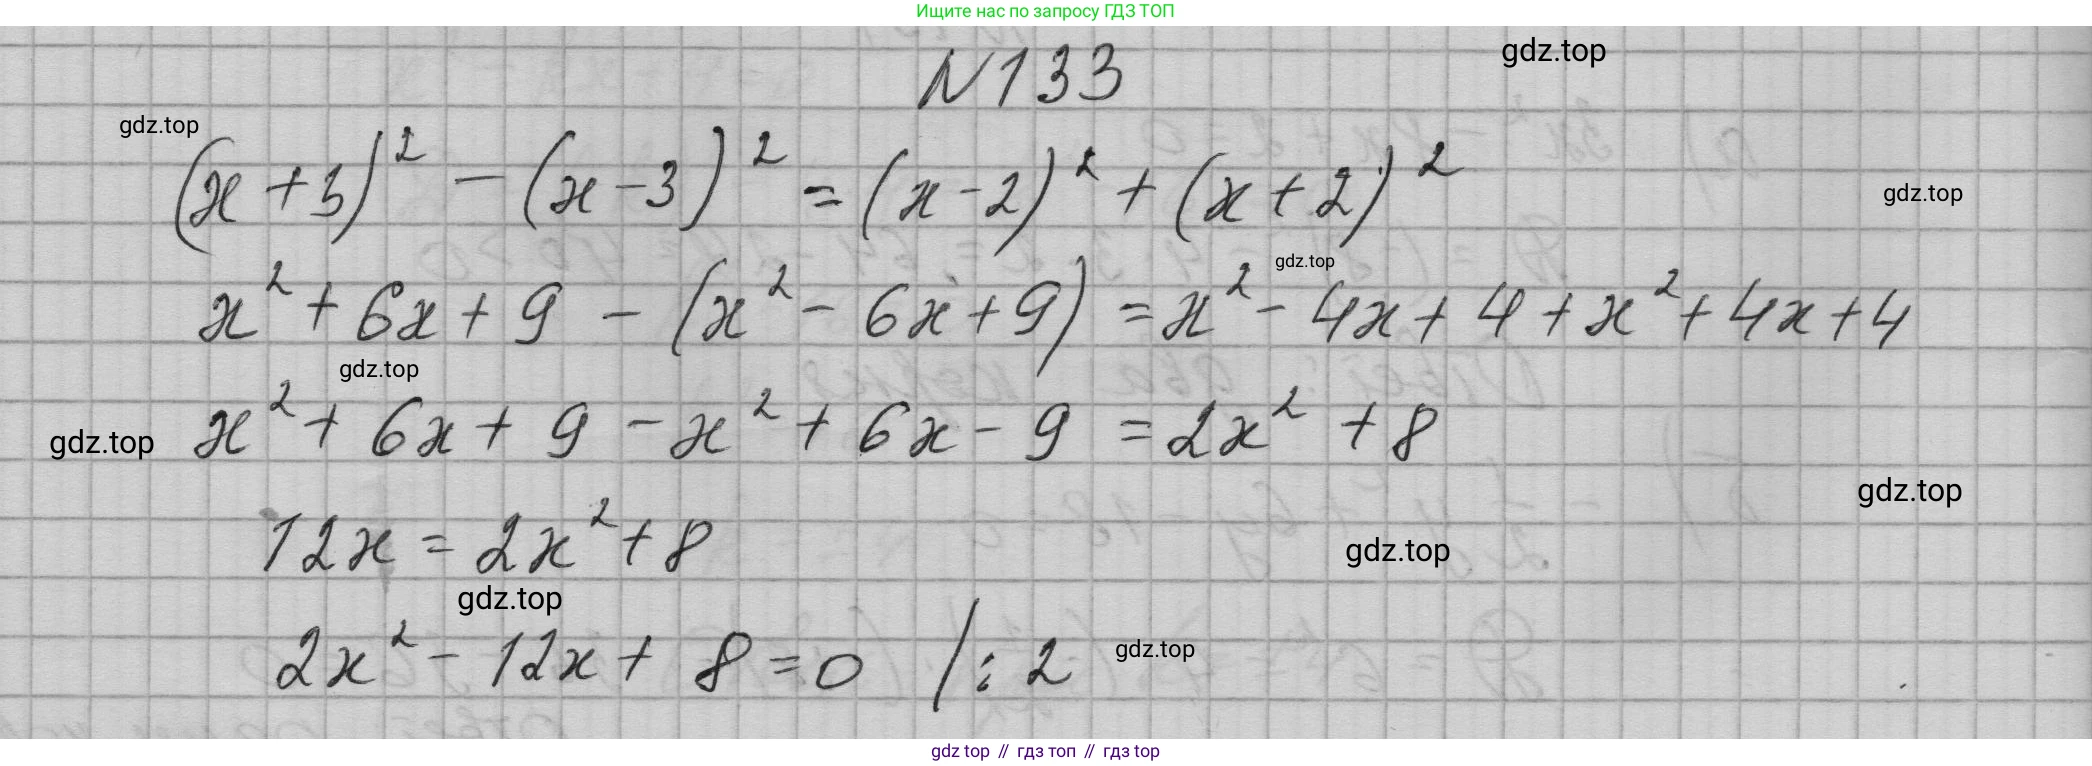 Ищите нас по запросу ГДЗ ТОП
N133
gdz.top
gdz.top
(x+3)² - (x-3)² = (x-2)² + (x+2)²
gdz.top
gdz.top
x² + 6x + 9 - (x² - 6x + 9) = x² - 4x + 4 + x² + 4x + 4
gdz.top
x² + 6x + 9 - x² + 6x - 9 = 2x² + 8
gdz.top
gdz.top
12x = 2x² + 8
gdz.top
gdz.top
2x² - 12x + 8 = 0 /: 2
gdz.top
gdz top // гдз топ // гдз top